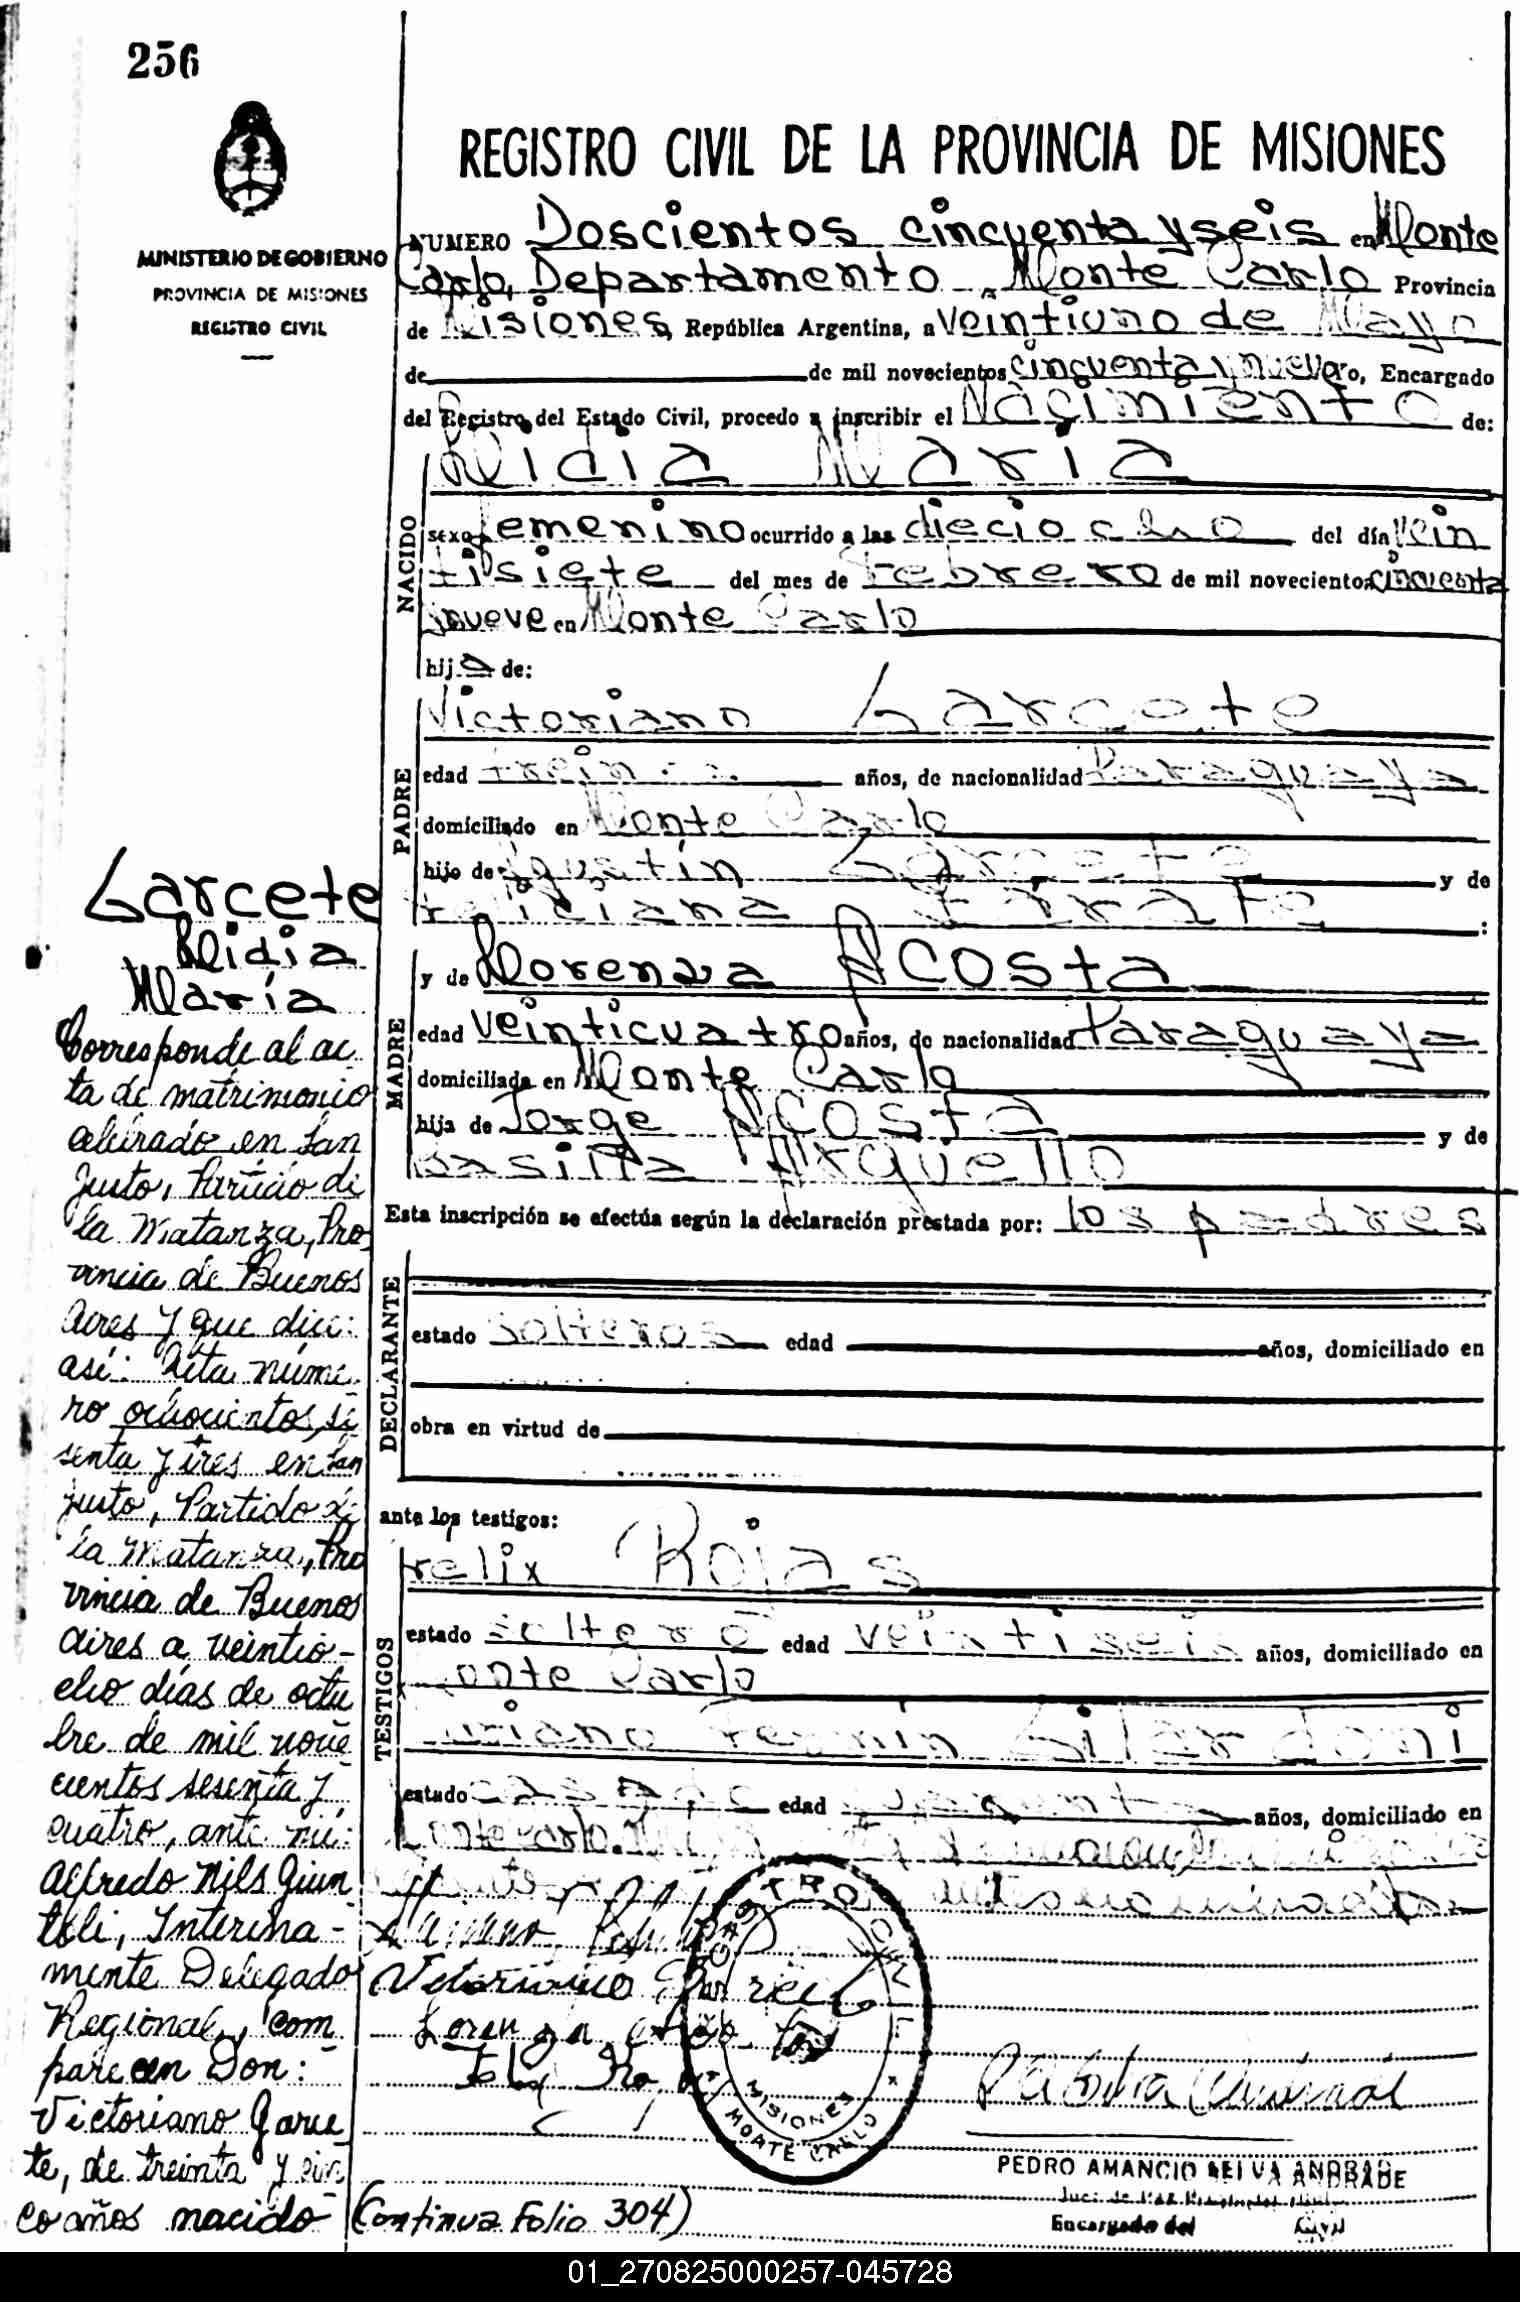 256
MINISTERIO DE GOBIERNO
PROVINCIA DE MISIONES
REGISTRO CIVIL
REGISTRO CIVIL DE LA PROVINCIA DE MISIONES
NUMERO Doscientos cincuenta y seis en Monte
Carlo, Departamento Monte Carlo Provincia
de Misiones, República Argentina, a veintiuno de Mayo
de de mil novecientos cincuenta y nueve yo, Encargado
del Registro del Estado Civil, procedo a inscribir el Nacimiento de:
NACIDO
Lidia Maria
sexo femenino ocurrido a las dieciocho del día vein
tisiete del mes de Febrero de mil novecientos cincuenta
nueve en Monte Carlo
hija de:
PADRE
Victoriano Garcete
edad treinta años, de nacionalidad Paraguaya
domiciliado en Monte Carlo
hijo de Agustín Garcete y de
Feliciana Zarate :
MADRE
y de Lorenza Acosta
edad veinticuatro años, de nacionalidad Paraguaya
domiciliada en Monte Carlo
hija de Jorge Acosta y de
Basilia Arguello
Esta inscripción se efectúa según la declaración prestada por: los padres
DECLARANTE
estado solteros edad años, domiciliado en
obra en virtud de
ante los testigos:
TESTIGOS
Felix Rojas
estado soltero edad veintiseis años, domiciliado en
Monte Carlo
Fermín Gilardoni
estado casado edad años, domiciliado en
Monte Carlo.
Garcete
Lidia
María
Corresponde al ac
ta de matrimonio
celebrado en San
Justo, Partido de
la Matanza, Pro
vincia de Buenos
Aires y que dice:
así: Acta núme
ro ochocientos se
senta y tres en San
Justo, Partido de
la Matanza, Pro
vincia de Buenos
Aires a veintio-
cho días de octu
bre de mil nove
cientos sesenta y
cuatro, ante mi:
Alfredo Nils Giun
telli, Interina-
mente Delegado
Regional, com
parecen Don:
Victoriano Garce
te, de treinta y cin
co años nacido
Lorenza
REGISTRO CIVIL
MISIONES
MONTE CARLO
PEDRO AMANCIO LEIVA ANDRADE
Encargado del Civil
(Continua Folio 304)
01_270825000257-045728